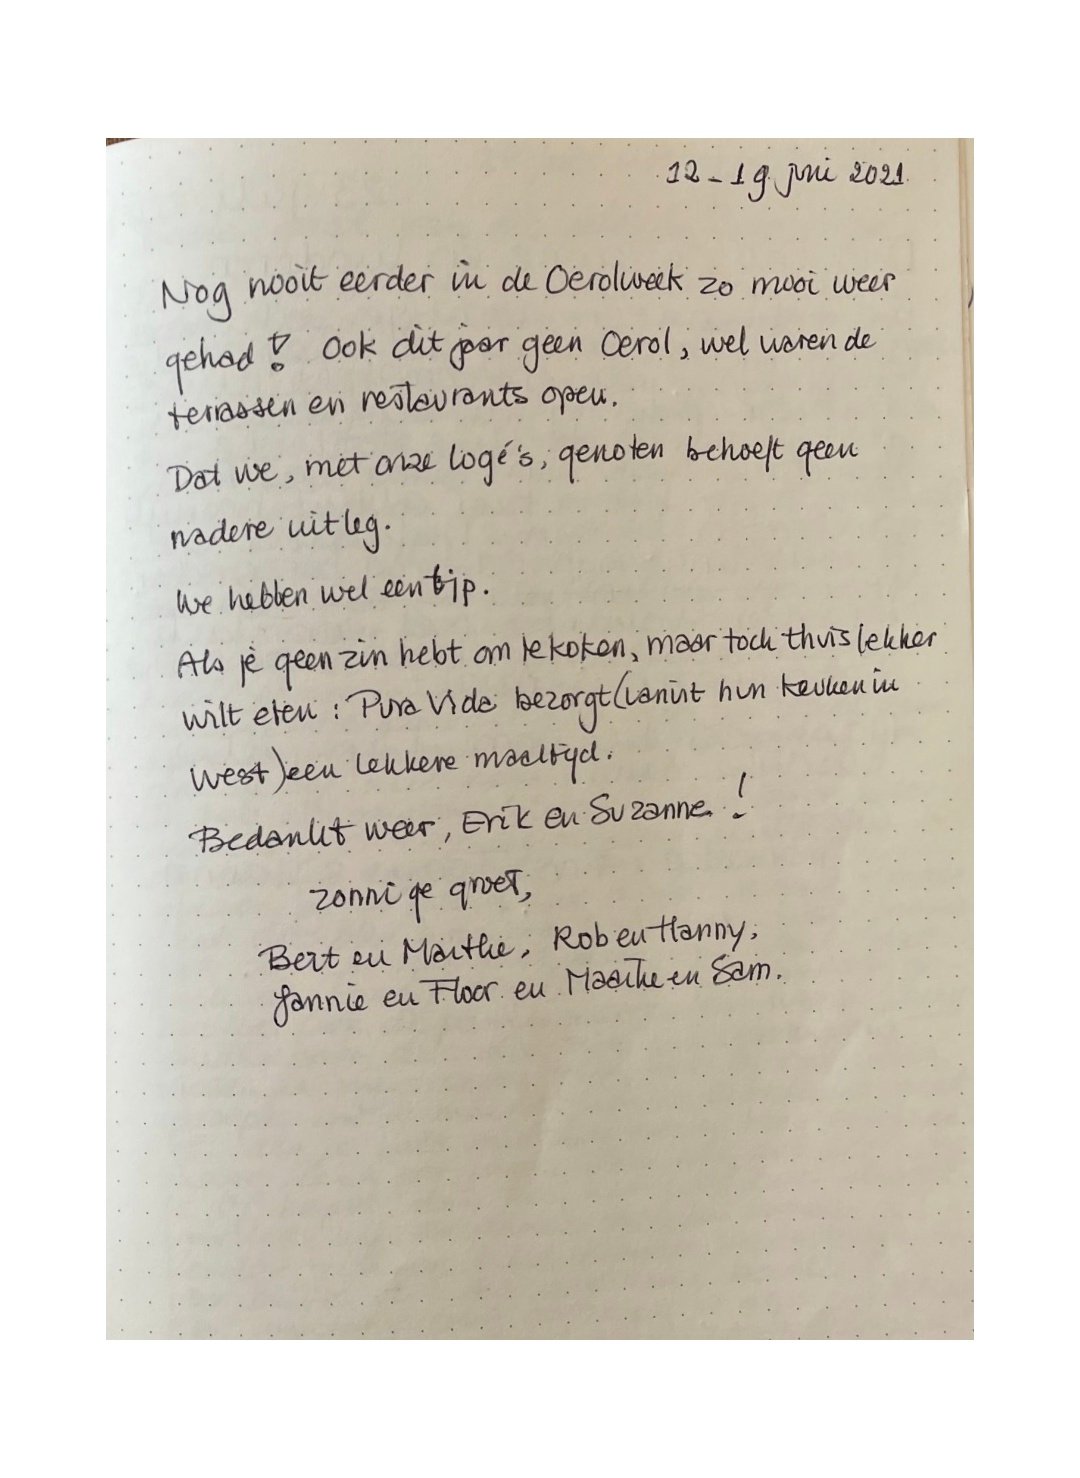 12-19 juni 2021
Nog nooit eerder in de Oerolweek zo mooi weer
gehad! Ook dit jaar geen Oerol, wel waren de
terrassen en restaurants open.
Dat we, met onze logé's, genoten behoeft geen
nadere uitleg.
We hebben wel een tip.
Als je geen zin hebt om te koken, maar toch thuis lekker
wilt eten: Pura Vida bezorgt (vanuit hun keuken in
West) een lekkere maaltijd.
Bedankt weer, Erik en Suzanne!
zonnige groet,
Bert en Marthe, Rob en Hanny,
Jannie en Floor en Maaike en Sam.